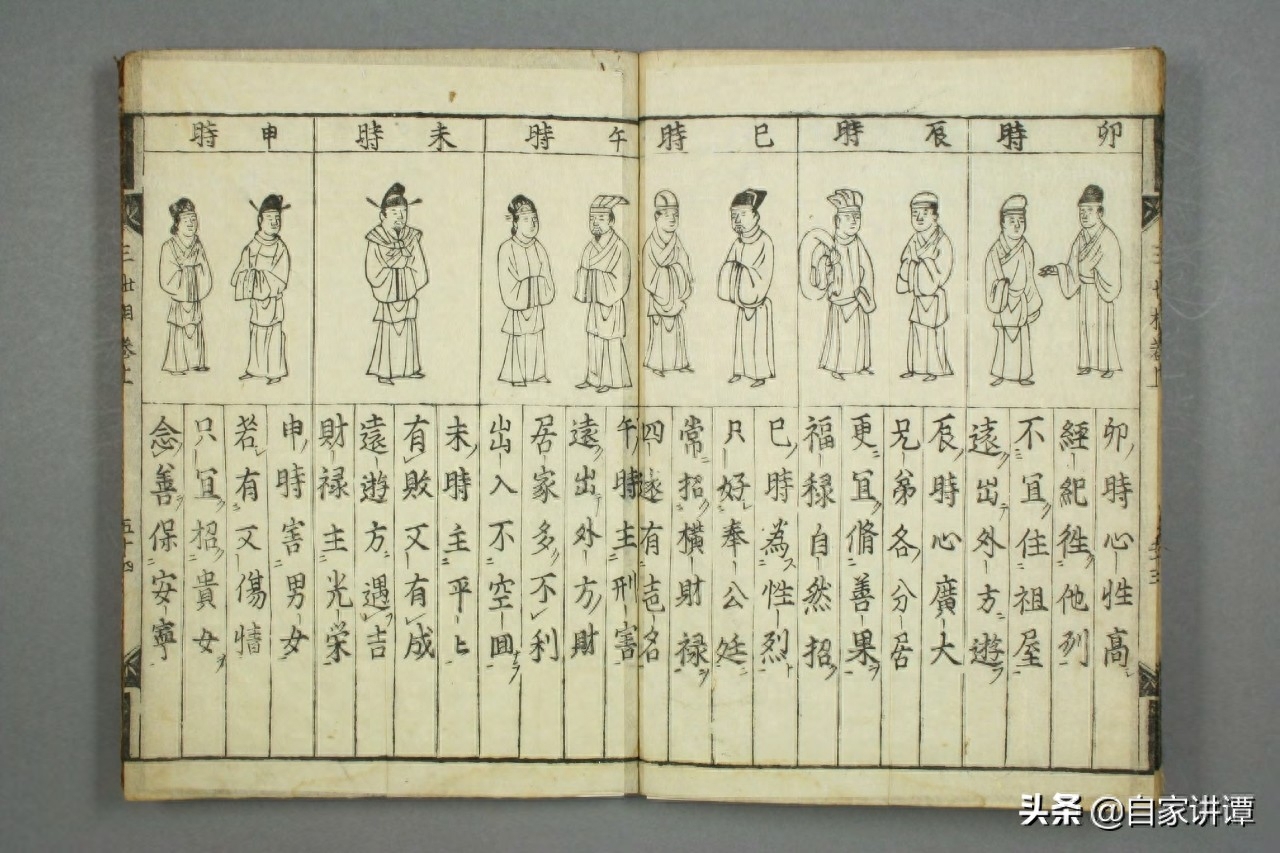 卯時
卯時心性高
經紀徃他列
不宜住祖屋
遠出外方遊
辰時
辰時心廣大
兄弟各分居
更宜脩善果
福禄自然招
巳時
巳時為性烈
只好奉公廷
常招橫財禄
四遂有壱名
午時
午時主刑害
遠出外方財
居家多不利
出入不空囬
未時
未時主平
有敗又有成
遠遊方遇吉
財禄主光栄
申時
申時害男女
若有又傷情
只宜招貴女
念善保安寧
三世相巻上
五十四
头条 @自家讲谭